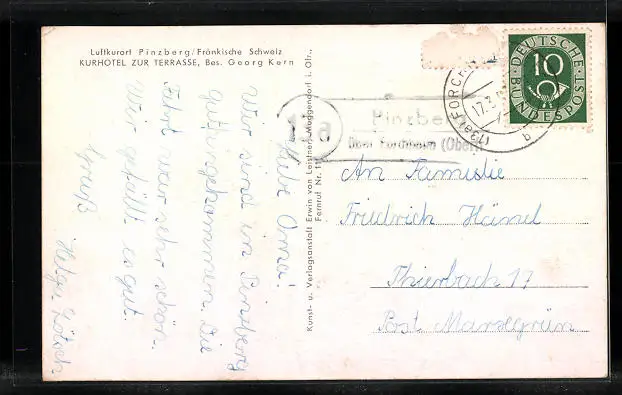 Luftkurort Pinzberg/Fränkische Schweiz
KURHOTEL ZUR TERRASSE, Bes. Georg Kern
Liebe Oma!
Wir sind in Pinzberg
gut angekommen. Die
Fahrt war sehr schön.
Wir gefällt es gut.
Gruß
Helga
Kunst- u. Verlagsanstalt Erwin von Leistner, Muggendorf i. Ofr.,
Fernruf Nr. 11
13a
Pinzberg
über Forchheim (Oberfr)
(13a) FORCH
17.2.
b
DEUTSCHE
BUNDESPOST
10
An Familie
Friedrich Hämel
Thierbach 17
Post Marxgrün